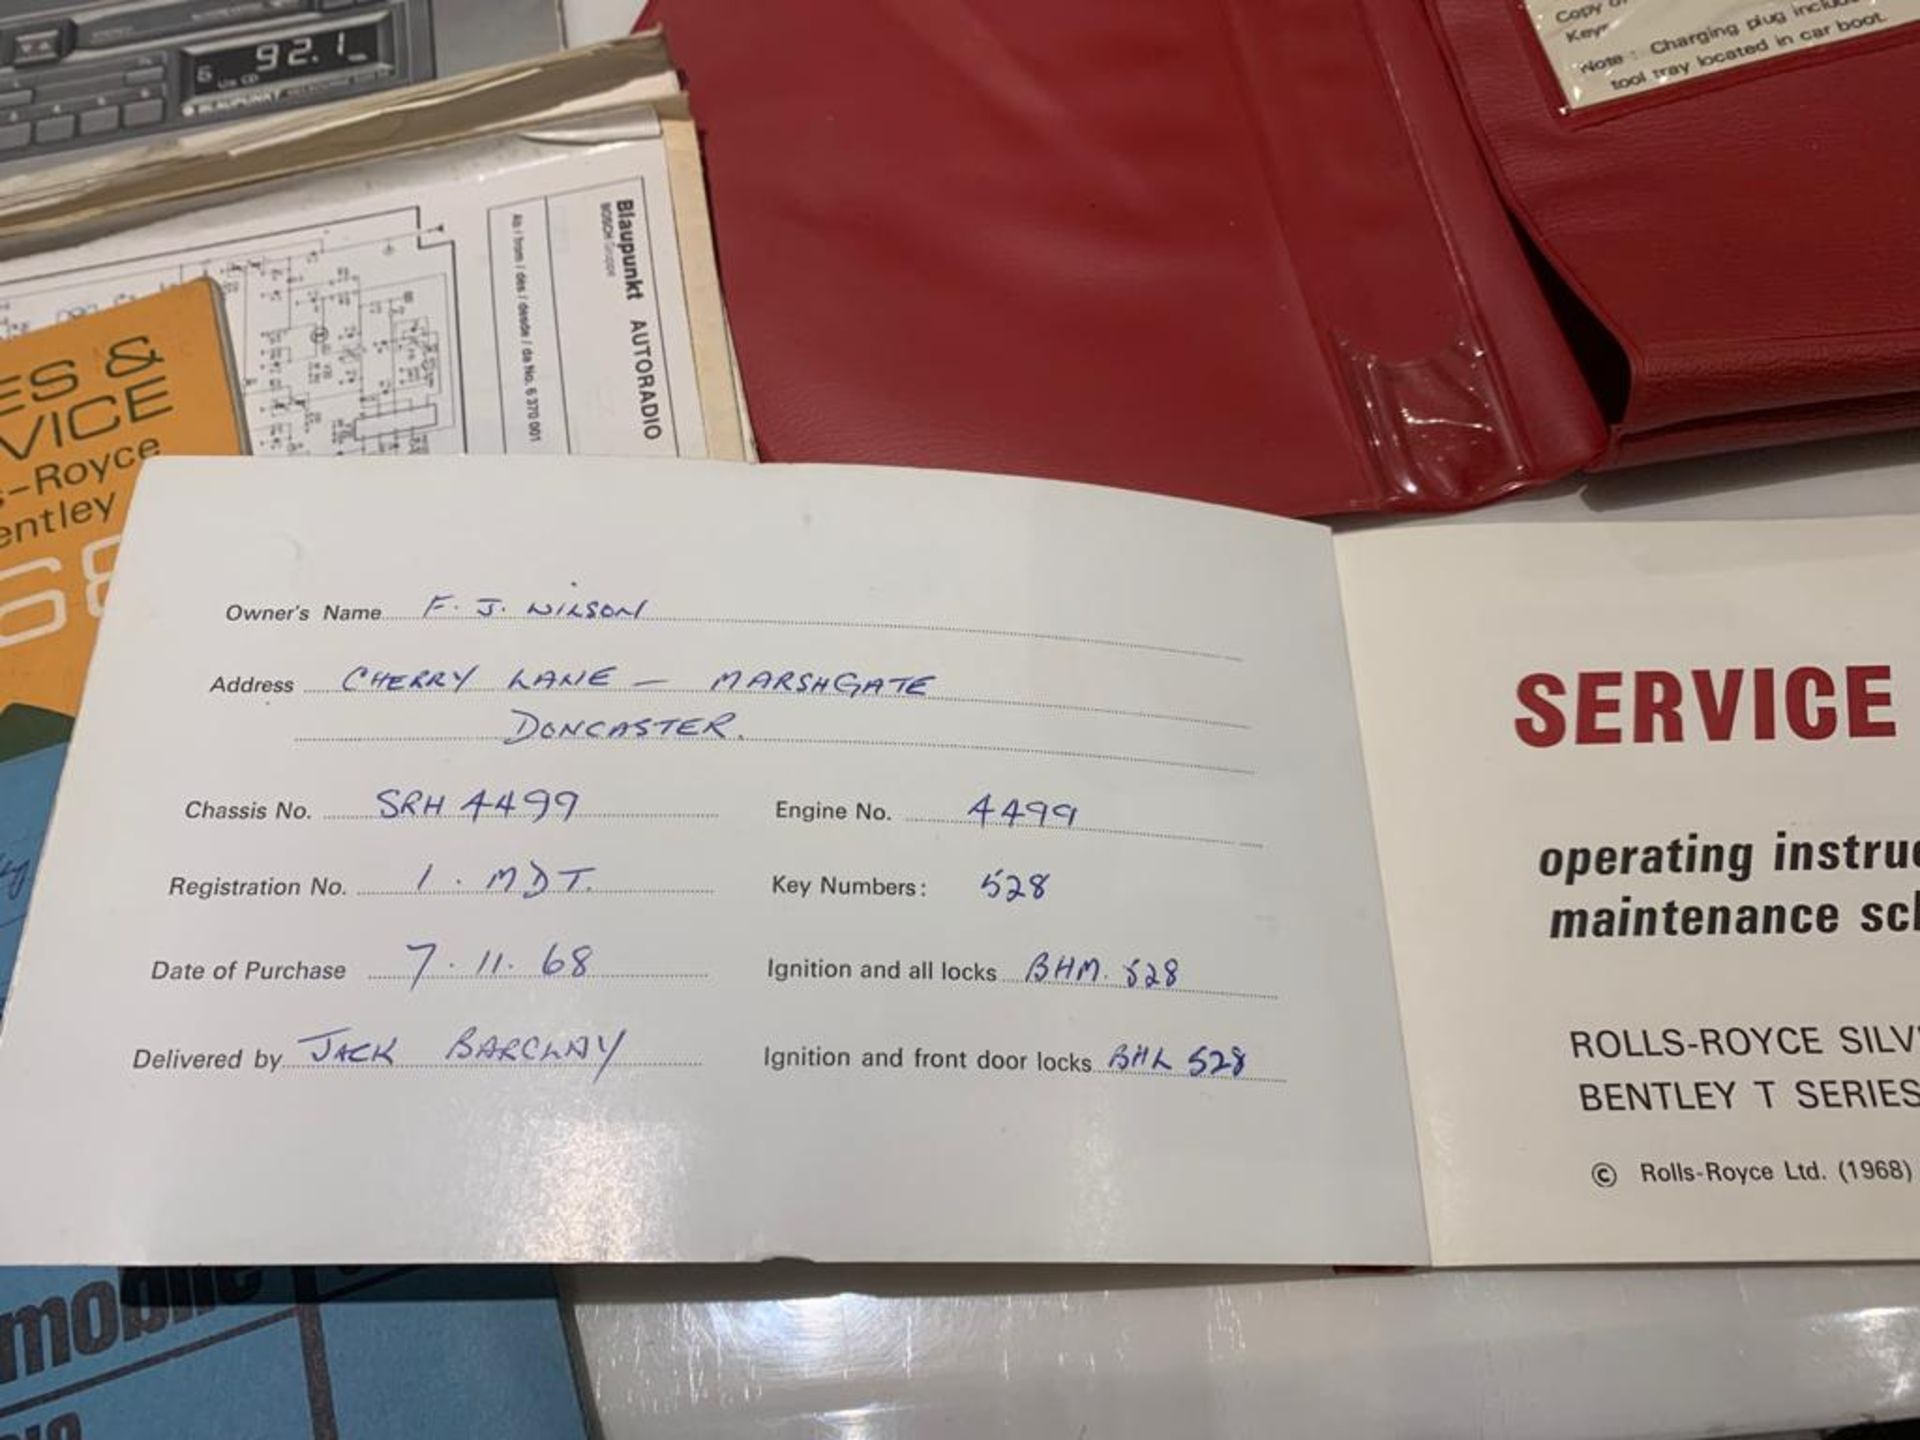 92.1
BLAUPUNKT
Blaupunkt AUTORADIO
BOSCH Gruppe
Ab / from / dès / desde / da No. 6 370 001
Copy
Keys
Note : Charging plug inclu
tool tray located in car boot.
ES &
VICE
s-Royce
entley
68
Owner's Name F. J. WILSON
Address CHERRY LANE - MARSHGATE
DONCASTER.
Chassis No. SRH 4499
Engine No. 4499
Registration No. 1 . MDT.
Key Numbers: 528
Date of Purchase 7.11.68
Ignition and all locks BHM. 528
Delivered by JACK BARCLAY
Ignition and front door locks BHL 528
SERVICE
operating instruc
maintenance sch
ROLLS-ROYCE SILV
BENTLEY T SERIES
© Rolls-Royce Ltd. (1968)
mobile